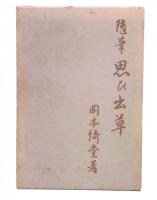 随筆 思ひ出草
岡本綺堂著